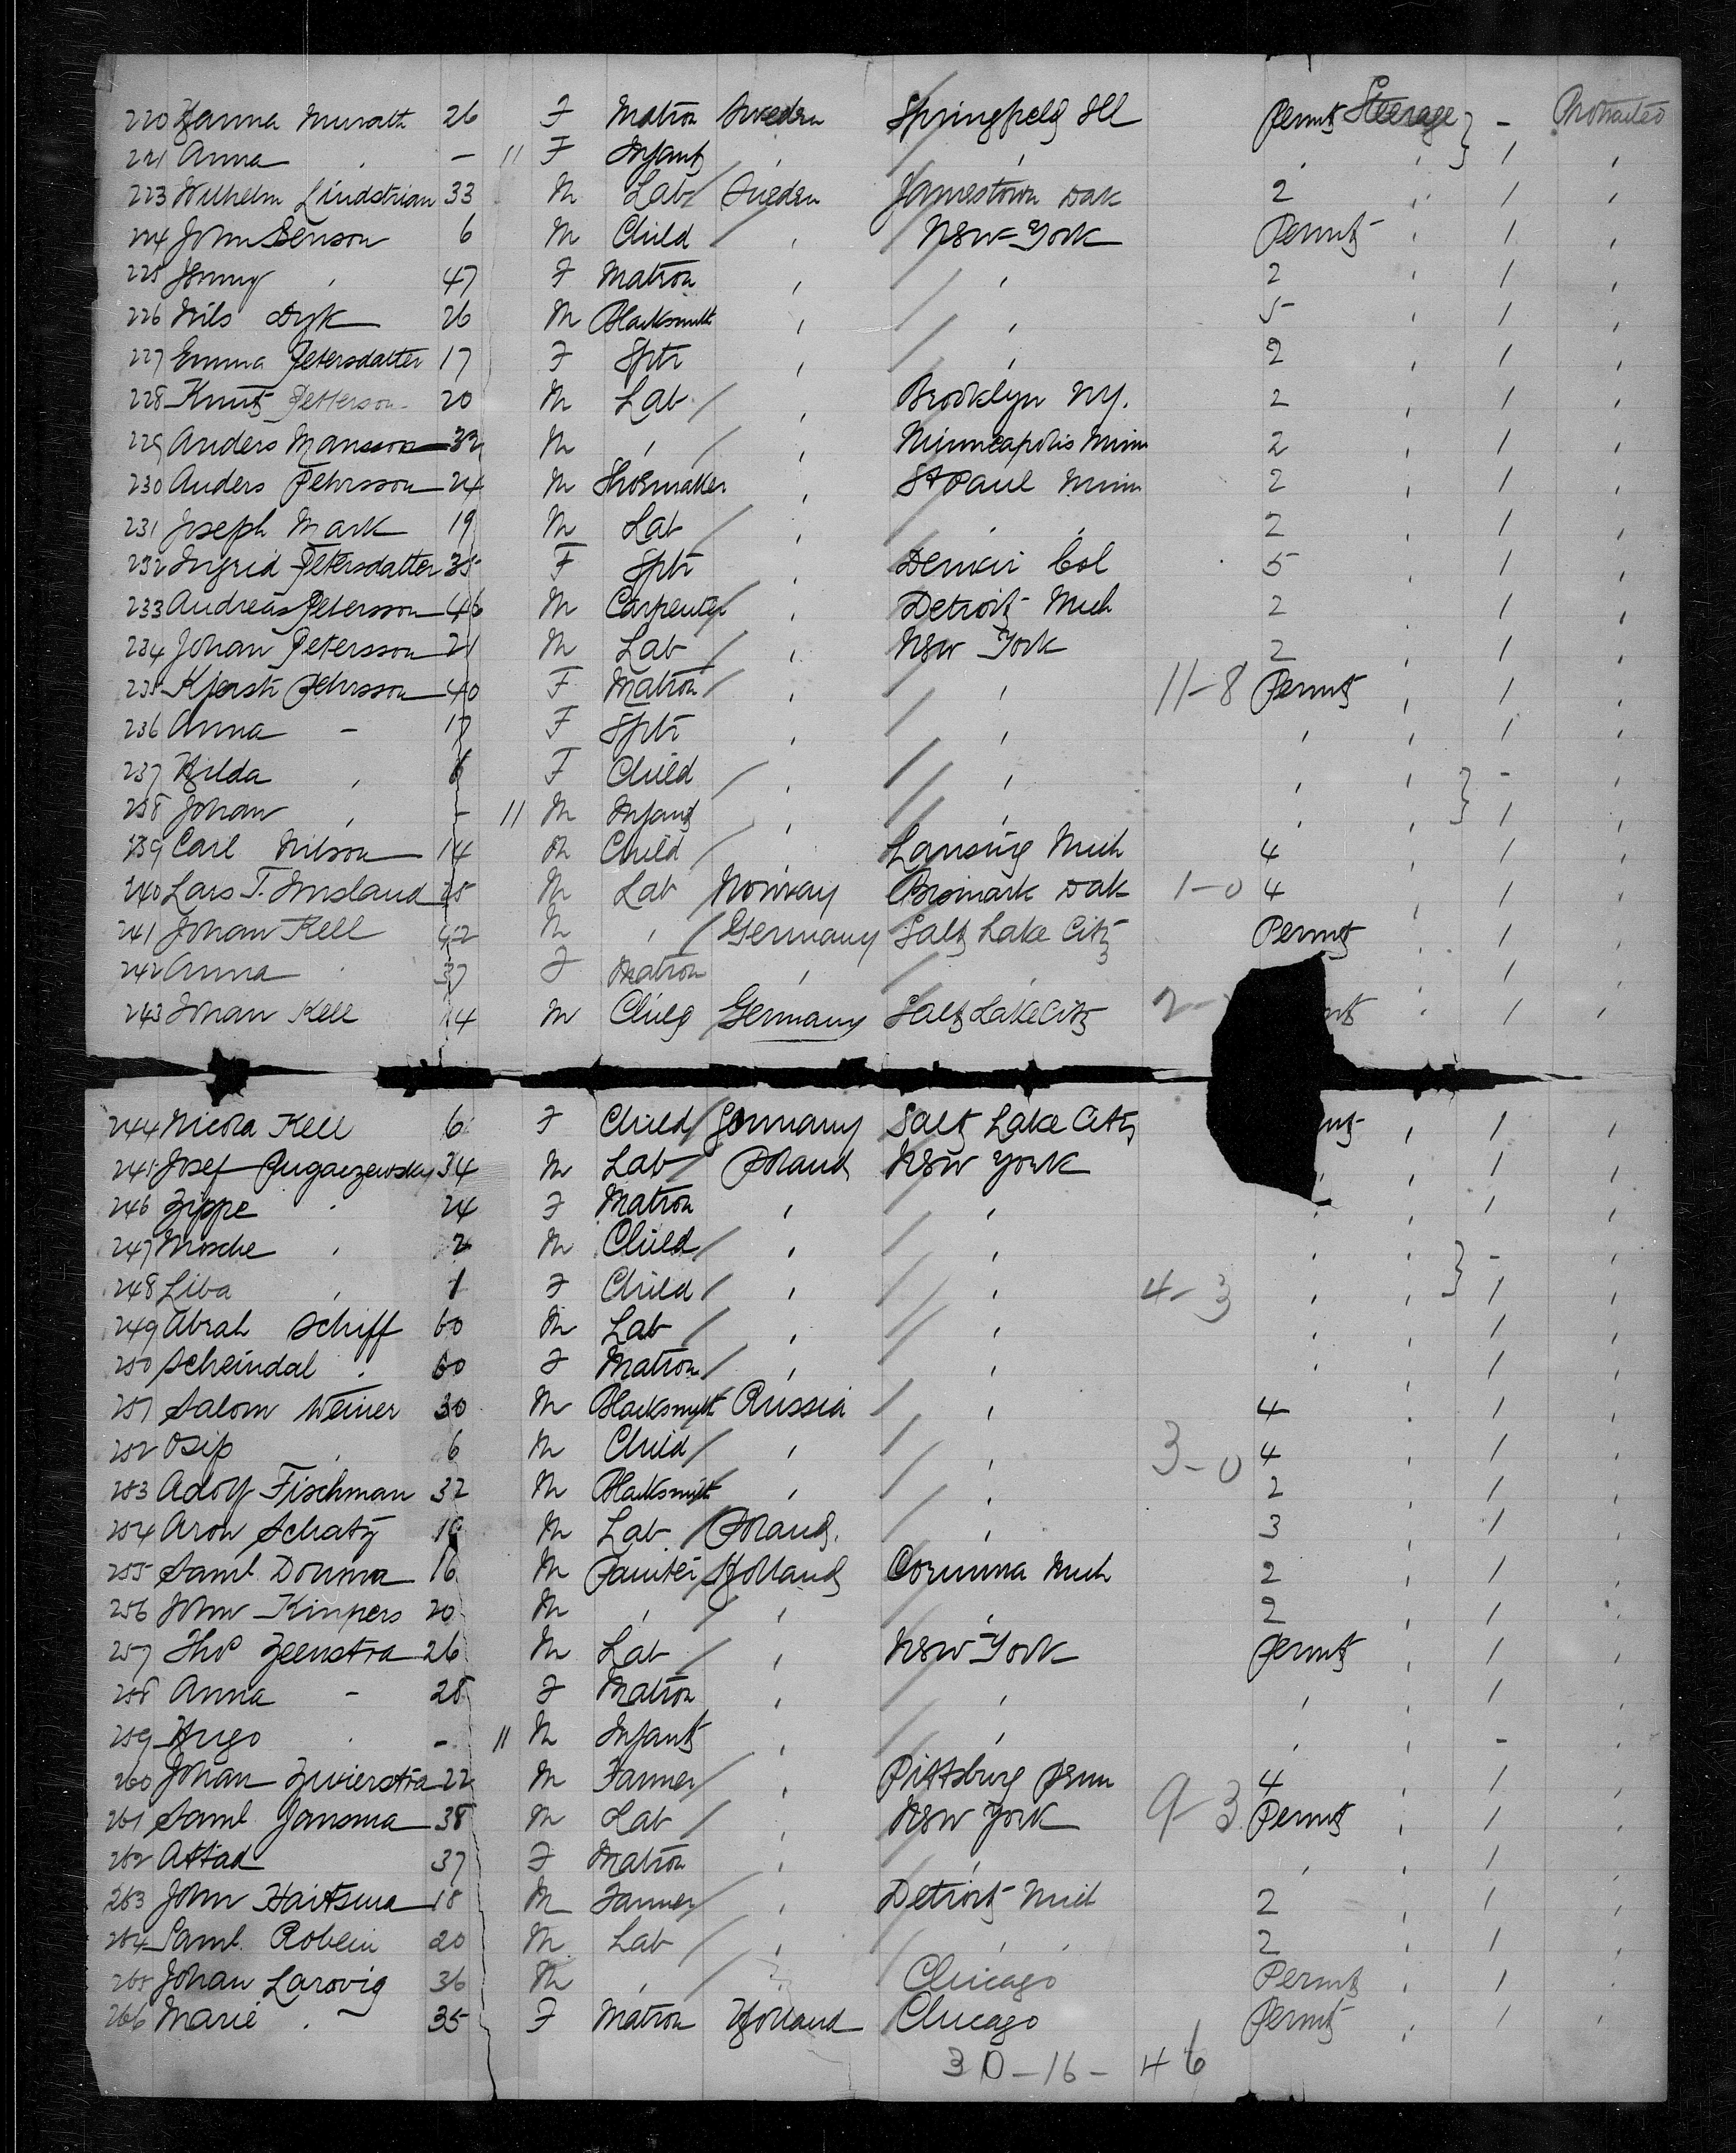 220 Hanna Murath 26 F Matron Sweden Springfield Ill Permt Steerage } - Protracted
221 Anna " - 11 F Infant " " " " 1 "
223 Wilhelm Lindstrian 33 M Lab Sweden Jamestown Dak 2 " 1 "
224 John Benson 6 M Child " New York Permt " 1 "
225 Jenny " 47 F Matron " " 2 " 1 "
226 Nils Dyk 26 M Blacksmith " " 5 " 1 "
227 Emma Petersdatter 17 F Sptr " " 2 " 1 "
228 Knut Petterson 20 M Lab " Brooklyn NY. 2 " 1 "
229 Anders Mansson 32 M " " Minneapolis Minn 2 " 1 "
230 Anders Pehrsson 24 M Shoemaker " St Paul Minn 2 " 1 "
231 Joseph Mark 19 M Lab " " " 2 " 1 "
232 Ingrid Petersdatter 35 F Sptr " Denver Col 5 " 1 "
233 Andreas Petersson 46 M Carpenter " Detroit Mich 2 " 1 "
234 Johan Petersson 21 M Lab " New York 2 " 1 "
235 Kjersti Pehrsson 40 F Matron " " 11-8 Permt " 1 "
236 Anna - 17 F Sptr " " " " 1 "
237 Hilda " 6 F Child " " " " } - "
238 Johan " - 11 M Infant " " " " 1 "
239 Carl Nilson 14 M Child " Lansing Mich 4 " 1 "
240 Lars T. Imsland 25 M Lab Norway Bismark Dak 1-0 4 " 1 "
241 Johan Kell 42 M " Germany Salt Lake City Permt " 1 "
242 Anna " 37 F Matron " " 1 "
243 Johan Kell 14 M Child Germany Salt Lake City 2- mt " 1 "
244 Nicola Kell 6 F Child Germany Salt Lake City mt " 1 "
245 Josef Pugaczewsky 34 M Lab Poland New York " " 1 "
246 Zippe " 24 F Matron " " " " 1 "
247 Mosche " 2 M Child " " " " } - "
248 Liba " 1 F Child " " 4-3 " " 1 "
249 Abrah Schiff 60 M Lab " " " " 1 "
250 Scheindal " 60 F Matron " " " " 1 "
251 Salom Weiner 30 M Blacksmith Russia " 4 " 1 "
252 Osip " 6 M Child " " 3-0 4 " 1 "
253 Adolf Fischman 32 M Blacksmith " " 2 " 1 "
254 Aron Schatz M Lab Poland. " 3 " 1 "
255 Saml. Douma 16 M Painter Holland Corunna Mich 2 " 1 "
256 John Kinpers 20 M " " " 2 " 1 "
257 Ths Zeenstra 26 M Lab " New York Permt " 1 "
258 Anna - 28 F Matron " " " " 1 "
259 Hugo " - 11 M Infant " " " " - "
260 Johan Zwierstra 22 M Farmer " Pittsburg Penn 4 " 1 "
261 Saml. Jansma 38 M Lab " New York 9-3 Permt " 1 "
262 Attad 37 F Matron " " " " 1 "
263 John Haitsma 18 M Farmer " Detroit Mich 2 " 1 "
264 Saml. Robein 20 M Lab " " " 2 " 1 "
265 Johan Larovig 36 M " " Chicago Permt " 1 "
266 Marie " - 35 F Matron Holland Chicago Permt " 1 "
30-16-46